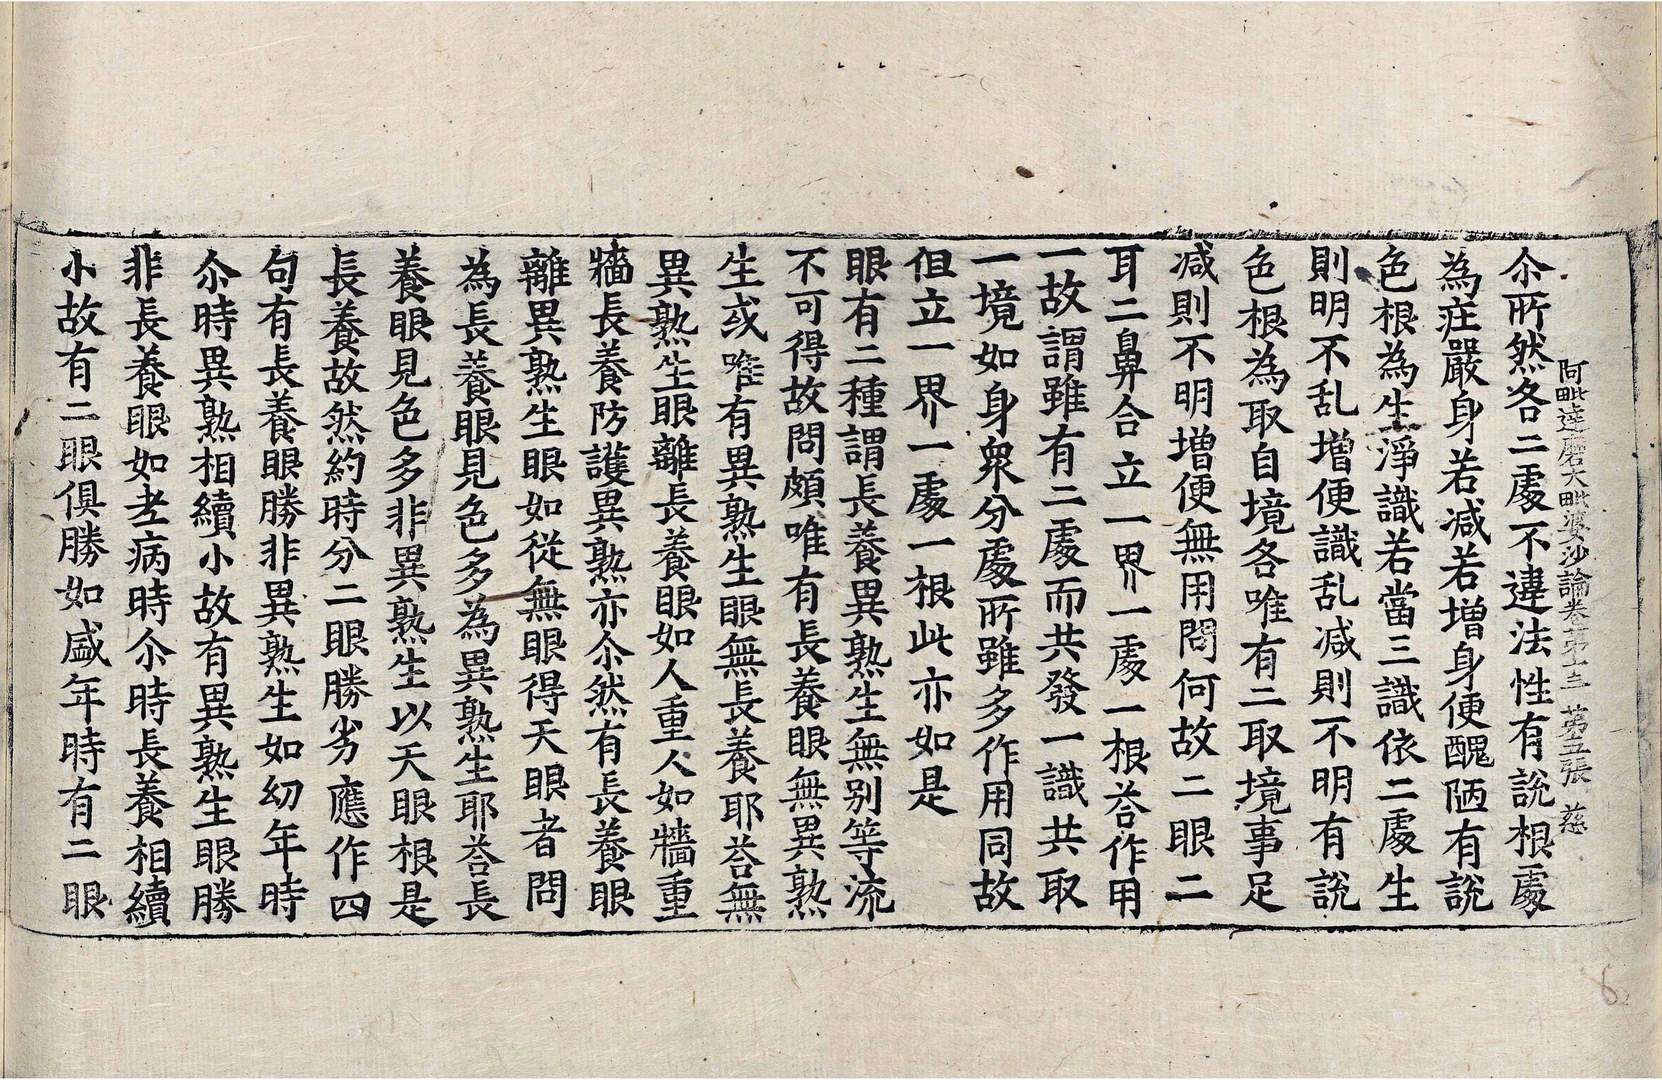 阿毗達磨大毗婆沙論卷第十三 第五張 慈
尒所然各二處不違法性有說根處
為莊嚴身若減若增身便醜陋有說
色根為生淨識若當三識依二處生
則明不乱增便識乱減則不明有說
色根為取自境各唯有二取境事足
減則不明增便無用問何故二眼二
耳二鼻合立一界一處一根荅作用
一故謂雖有二處而共發一識共取
一境如身衆分處所雖多作用同故
但立一界一處一根此亦如是
眼有二種謂長養異熟生無別等流
不可得故問頗唯有長養眼無異熟
生或唯有異熟生眼無長養耶荅無
異熟生眼離長養眼如人重人如牆重
牆長養防護異熟亦尒然有長養眼
離異熟生眼如從無眼得天眼者問
為長養眼見色多為異熟生耶荅長
養眼見色多非異熟生以天眼根是
長養故然約時分二眼勝劣應作四
句有長養眼勝非異熟生如幼年時
尒時異熟相續小故有異熟生眼勝
非長養眼如老病時尒時長養相續
小故有二眼俱勝如盛年時有二眼